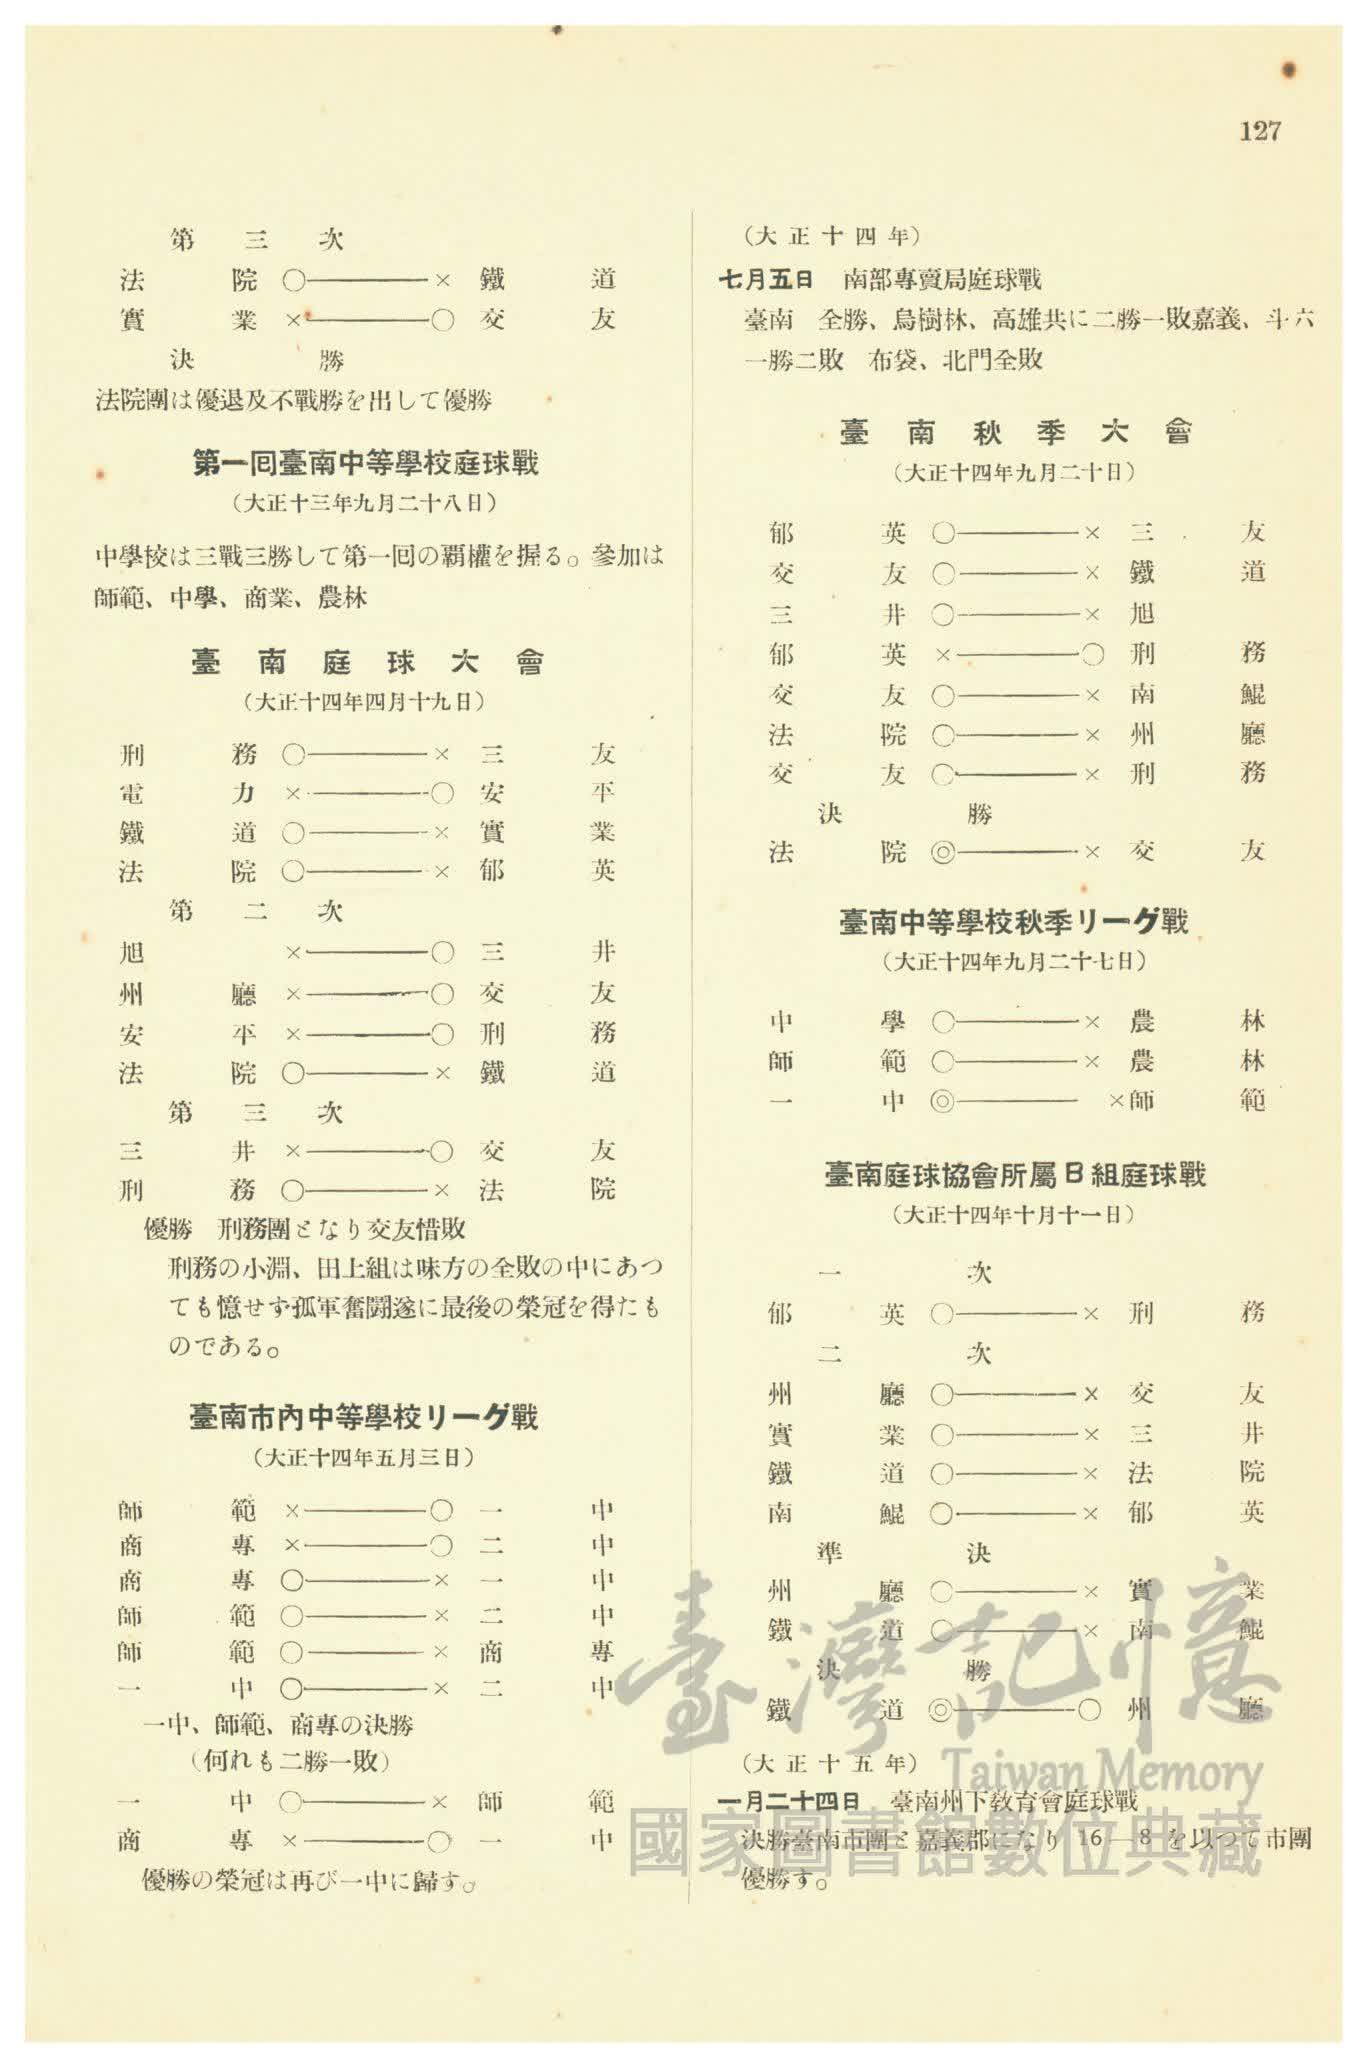 127
第三次
法院○———×鐵道
實業×———○交友
決勝
法院團は優退及不戰勝を出して優勝
第一囘臺南中等學校庭球戰
(大正十三年九月二十八日)
中學校は三戰三勝して第一囘の覇權を握る。參加は
師範、中學、商業、農林
臺南庭球大會
(大正十四年四月十九日)
刑務○———×三友
電力×———○安平
鐵道○———×實業
法院○———×郁英
第二次
旭×———○三井
州廳×———○交友
安平×———○刑務
法院○———×鐵道
第三次
三井×———○交友
刑務○———×法院
優勝 刑務團となり交友惜敗
刑務の小淵、田上組は味方の全敗の中にあつ
ても憶せず孤軍奮鬪遂に最後の榮冠を得たも
のである。
臺南市內中等學校リーグ戰
(大正十四年五月三日)
師範×———○一中
商專×———○二中
商專○———×一中
師範○———×二中
師範○———×商專
一中○———×二中
一中、師範、商專の決勝
(何れも二勝一敗)
一中○———×師範
商專×———○一中
優勝の榮冠は再び一中に歸す。
(大正十四年)
七月五日 南部專賣局庭球戰
臺南 全勝、烏樹林、高雄共に二勝一敗嘉義、斗六
一勝二敗 布袋、北門全敗
臺南秋季大會
(大正十四年九月二十日)
郁英○———×三友
交友○———×鐵道
三井○———×旭
郁英×———○刑務
交友○———×南鯤
法院○———×州廳
交友○———×刑務
決勝
法院◎———×交友
臺南中等學校秋季リーグ戰
(大正十四年九月二十七日)
中學○———×農林
師範○———×農林
一中◎——— ×師範
臺南庭球協會所屬B組庭球戰
(大正十四年十月十一日)
一次
郁英○———×刑務
二次
州廳○———×交友
實業○———×三井
鐵道○———×法院
南鯤○———×郁英
準決
州廳○———×實業
鐵道○———×南鯤
決勝
鐵道◎———○州廳
(大正十五年)
一月二十四日 臺南州下敎育會庭球戰
決勝臺南市團と嘉義郡になり 16—8 を以つて市團
優勝す。
臺灣記憶
Taiwan Memory
國家圖書館數位典藏